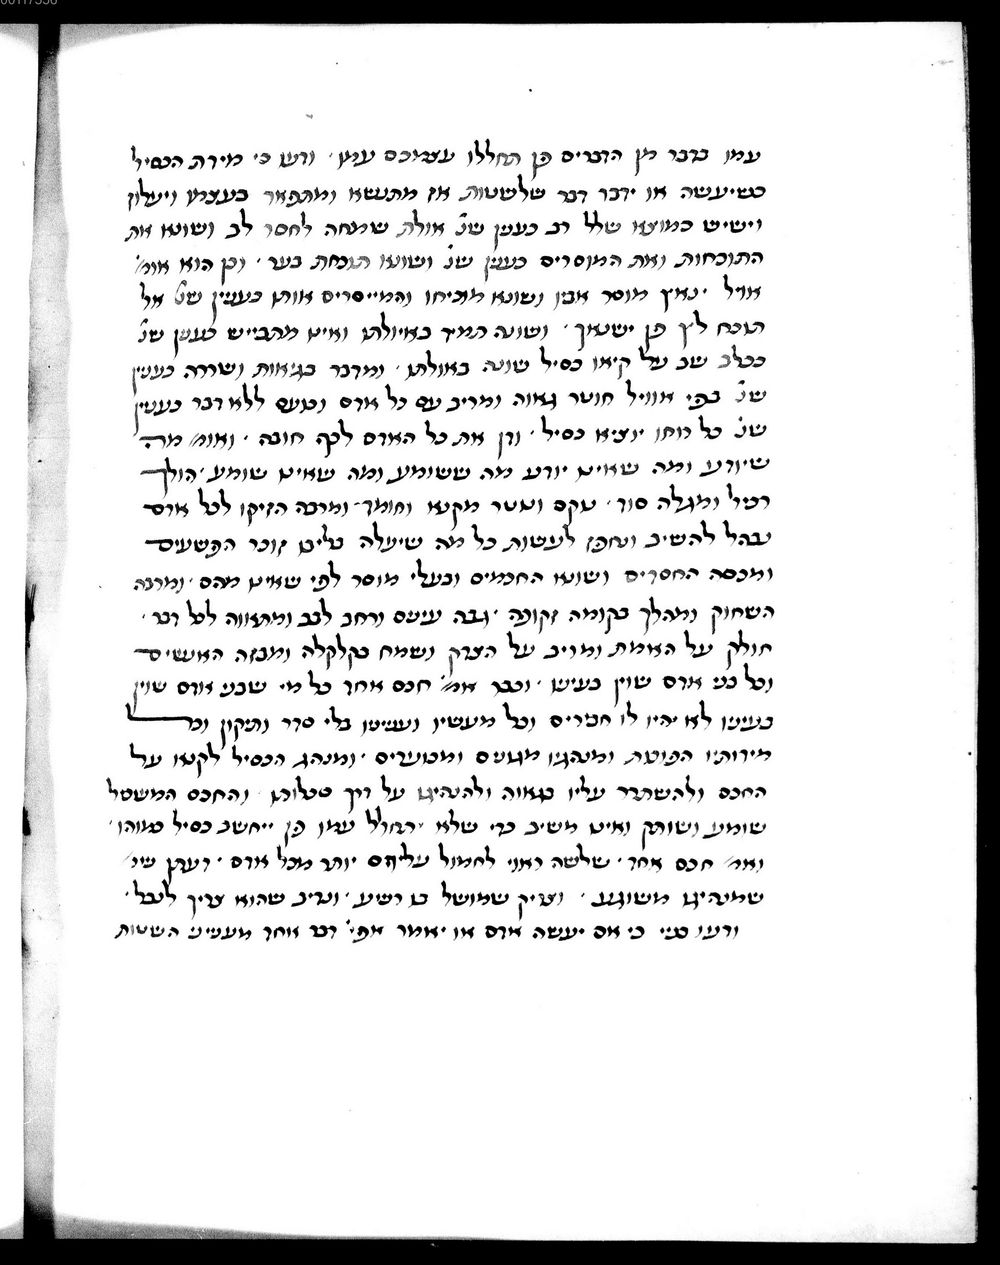 עמו בדבר מן הדברים פן תחללו עצמיכם עמו · ודעו כי מידת הכסיל
כשיעשה או ידבר דבר של שטות אז מתנשא ומתפאר בעצמו ויעלוז
וישיש כמוצא שלל רב כענין שנ׳ אולת שמחה לחסר לב ושונא את
התוכחות ואת המוסרים כענין שנ׳ ושונא תוכחת בער · וכן הוא אומ׳
אויל ינאץ מוסר אביו ושונא מוכיחו והמייסרים אותו כענין שנ׳ אל
תוכח לץ פן ישנאך · ושונה תמיד באיולתו ואינו מתבייש כענין שנ׳
ככלב שב על קיאו כסיל שונה באולתו · ומדבר בגיאות ושררה כענין
שנ׳ בפי אוויל חוטר גאוה ומריב עם כל אדם וכועס ללא דבר כענין
שנ׳ כל רוחו יוציא כסיל · ודן את כל האדם לכף חובה · ואומ׳ מה
שיודע ומה שאינו יודע מה ששומע ומה שאינו שומע · הולך
רכיל ומגלה סוד · עקש ושוטר מקנא וחומד · ומרבה הזיקו לכל אדם
נבהל להשיב ונחפז לעשות כל מה שיעלה עליו זוכר הפשעים
ומכסה החסדים ושונא החכמים ובעלי מוסר לפי שאינו מהם · ומרבה
השחוק ומהלך בקומה זקופה · גבה עינים ורחב לבב ומתאווה לכל דבר ·
חולק על האמת ומריב על הצדק ושמח בקלקלה ומבזה האנשים
וכל בני אדם שוין בעיניו · וכבר אמ׳ חכם אחד כל מי שבני אדם שוין
בעיניו לא יהיו לו חבירים וכל מעשיו וענייניו בלי סדר ותיקון וכל
מידותיו הפוכות ומנהגיו מגונים ומכוערים · ומנהג הכסיל לקנא על
החכם ולהשתרר עליו בגאוה ולהנהיגו על דרך סכלותו · והחכם המשכיל
שומע ושותק ואינו משיב כדי שלא יתחלל עמו פן ייחשב כסיל כמוהו ·
ואמ׳ חכם אחד · שלשה ראוי לחמול עליהם יותר מכל אדם · דעתן שינ׳
שמנהיגו משוגע · וצדיק שמושל בו רשע · ונדיב שהוא צריך לנבל ·
ודעו בניי כי אם יעשה אדם או יאמר אפי׳ דבר אחד מענייני השטות